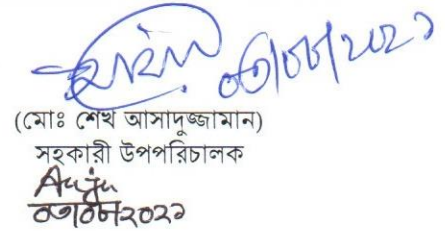 ০৩/০৮/২০২১
(মোঃ শেখ আসাদুজ্জামান)
সহকারী উপপরিচালক
০৩/০৮/২০২১